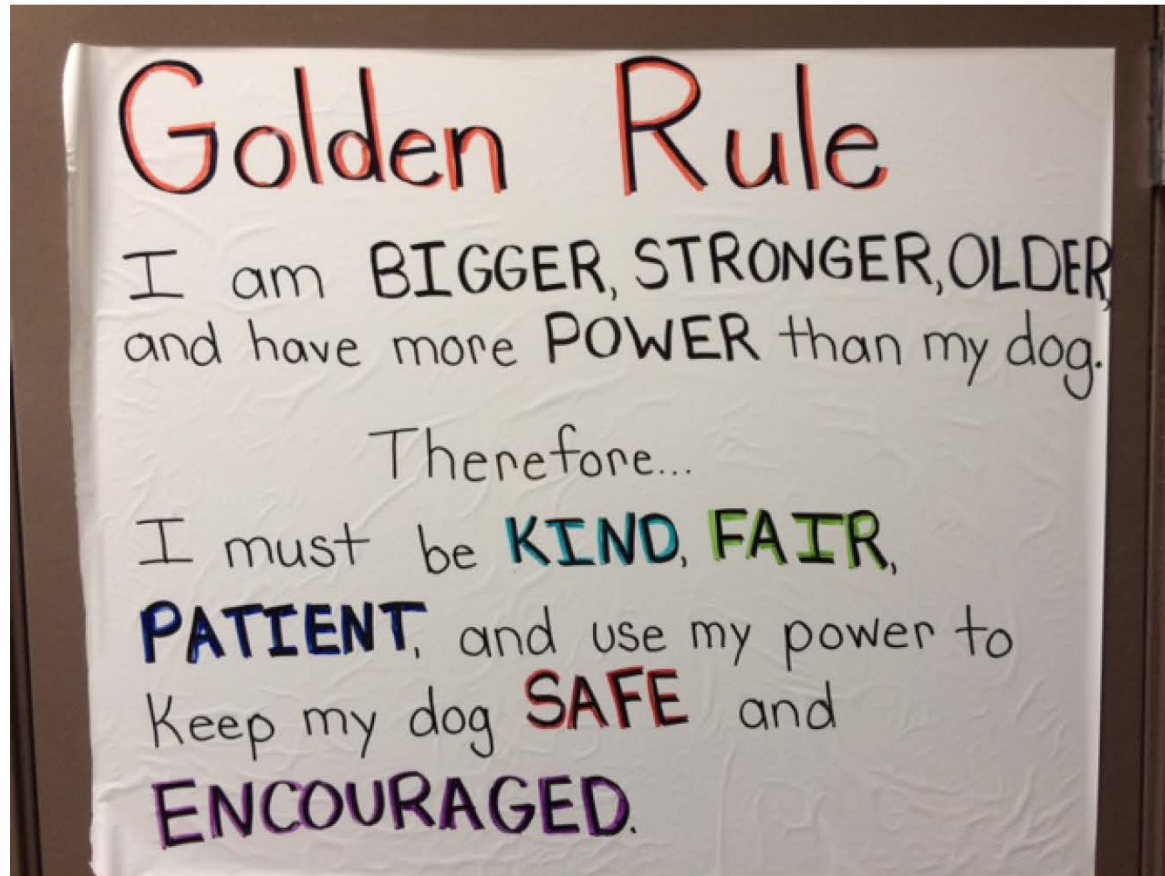 Golden Rule
I am BIGGER, STRONGER, OLDER,
and have more POWER than my dog.
Therefore...
I must be KIND, FAIR,
PATIENT, and use my power to
Keep my dog SAFE and
ENCOURAGED.